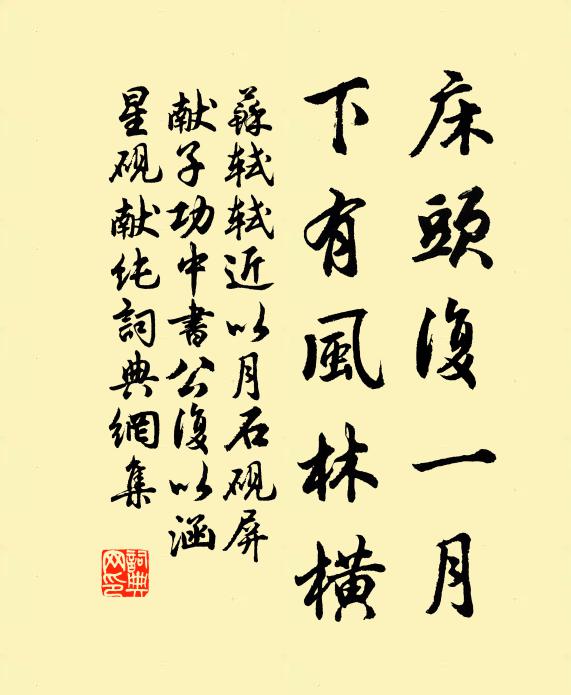 床頭復一月
下有風林橫
蘇軾軾近以月石硯屏
献子功中書公復以涵
星硯献纯詞典網集
詞典网印